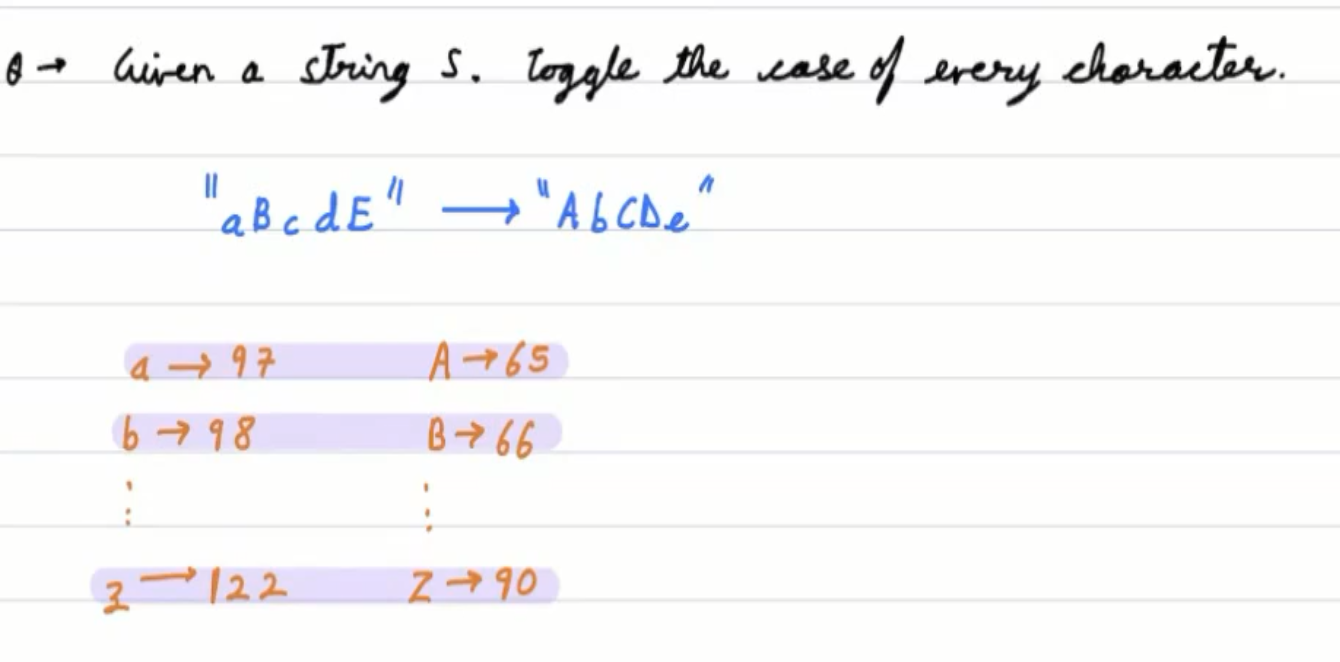 Q → Given a string S. Toggle the case of every character.
"aBcdE" → "AbCDe"
a → 97 A → 65
b → 98 B → 66
⋮ ⋮
z → 122 Z → 90